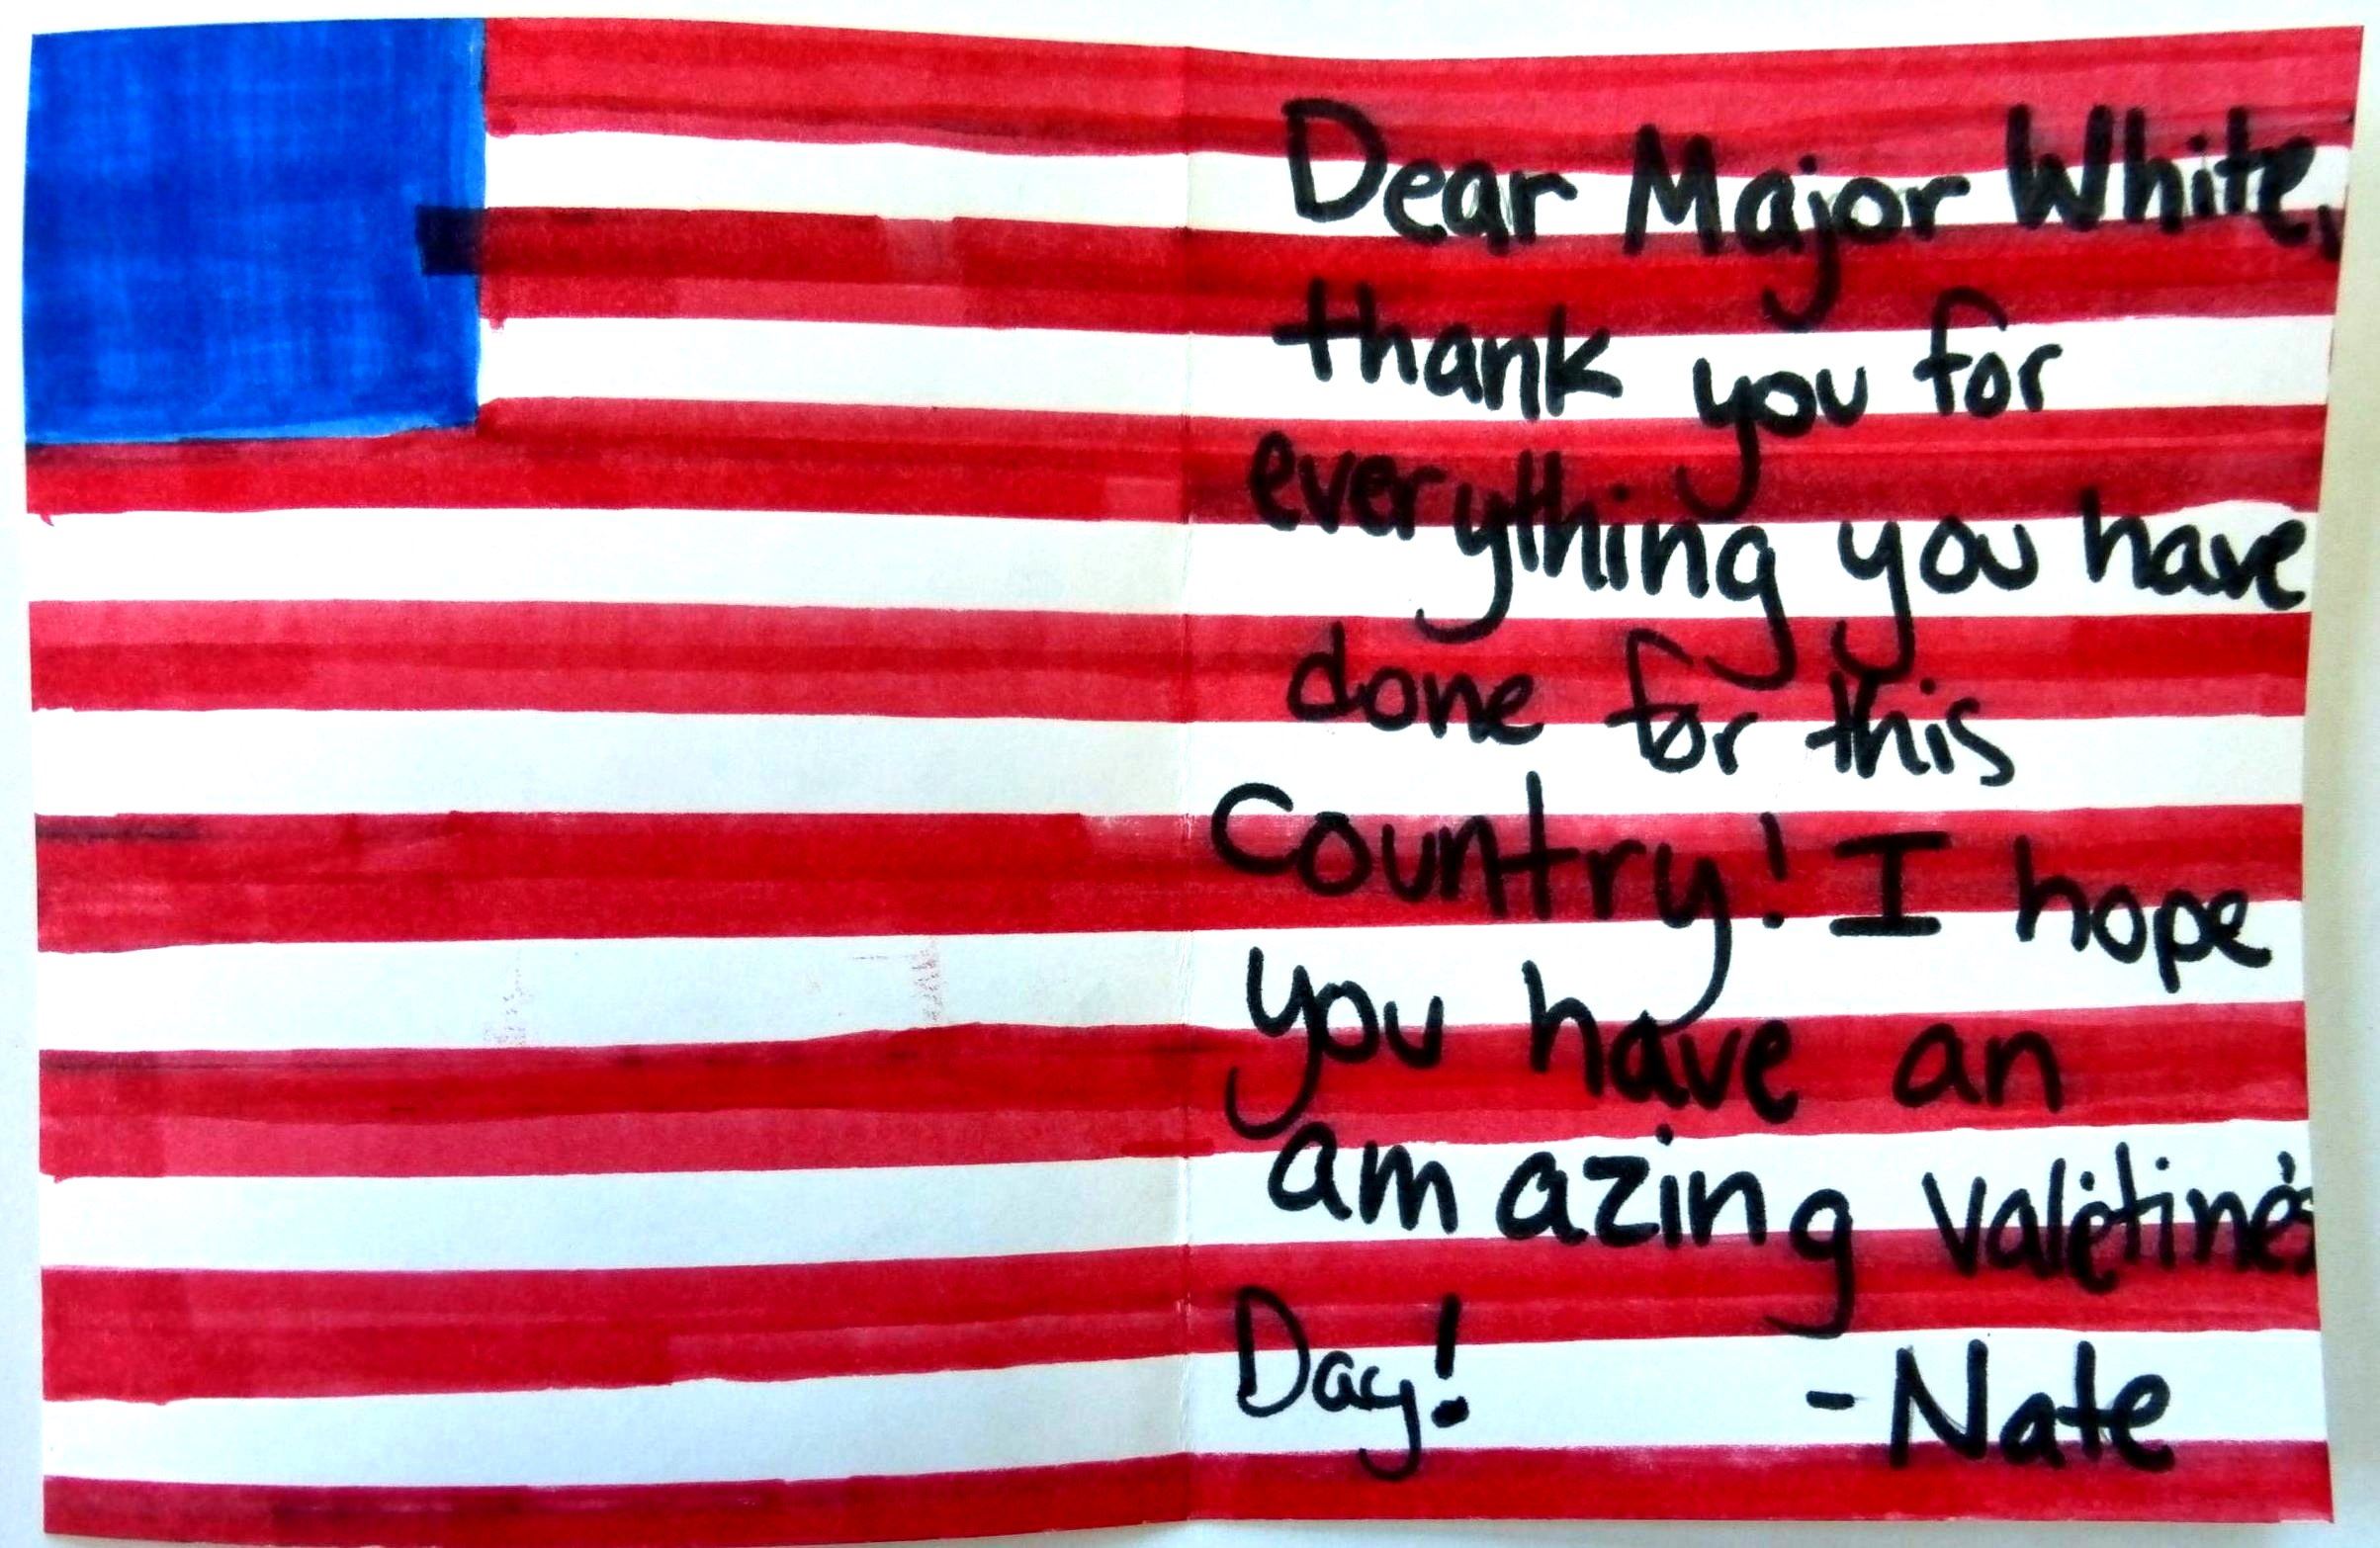 Dear Major White,
thank you for
everything you have
done for this
Country! I hope
you have an
amazing Valetine's
Day! -Nate